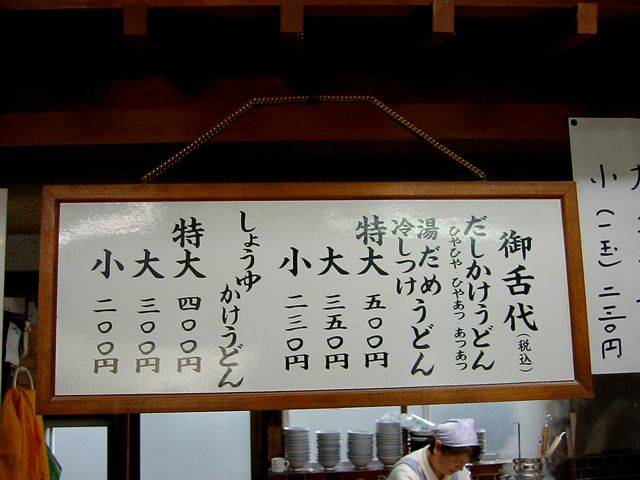 御舌代(税込)
だしかけうどん
ひやひや ひやあつ あつあつ
湯だめうどん
冷しつけ
特大 五〇〇円
大 三五〇円
小 二三〇円
しょうゆかけうどん
特大 四〇〇円
大 三〇〇円
小 二〇〇円
小(一玉)二三〇円